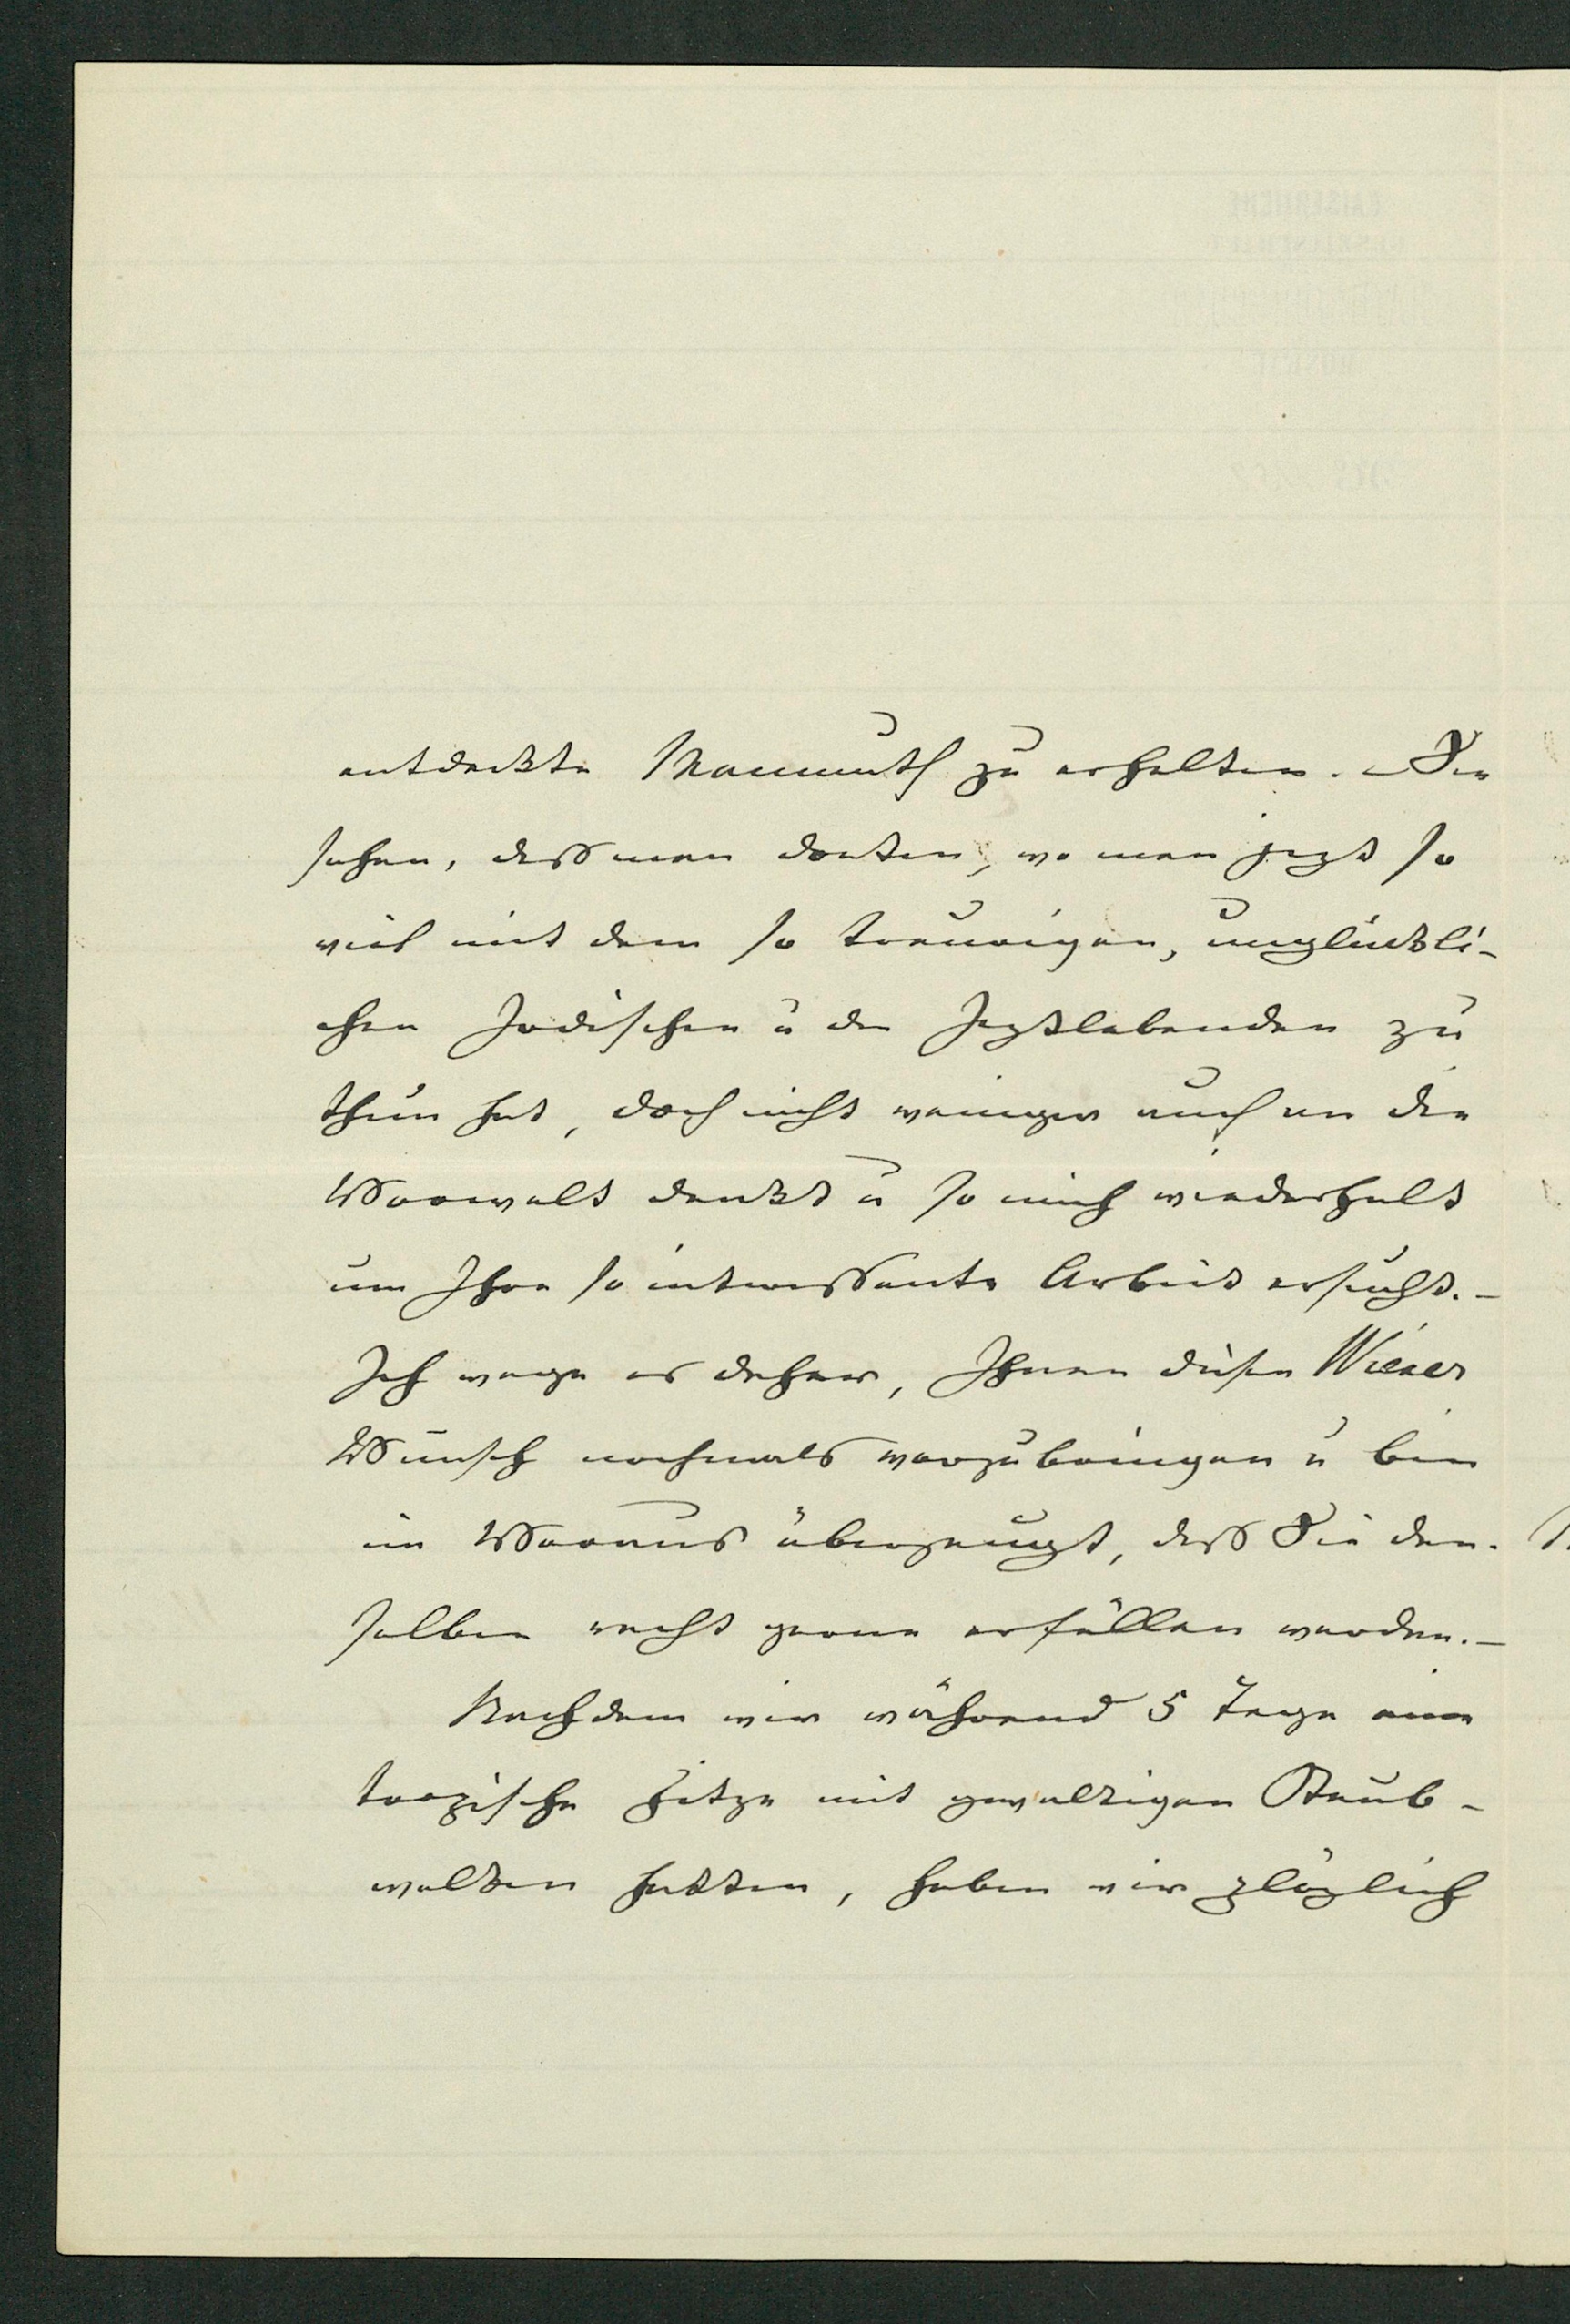 entdeckte Mammuth zu erhalten. – Sie
sehen, daß man dorten, wo man jezt so
viel mit dem so traurigen, unglückli-
chen Irdischen u den Jeztlebenden zu
thun hat, doch nicht weniger auch an die
Vorwelt denkt u so mich wiederholt
um Ihre so interessante Arbeit ersucht. –
Ich wage es daher, Ihnen diesen Wiener
Wunsch nochmals vorzubringen u bin
im Voraus überzeugt, daß Sie den-
selben recht gerne erfüllen werden. –
Nachdem wir während 5 Tage eine
tropische Hitze mit gewaltigen Staub-
wolken hatten, haben wir plözlich